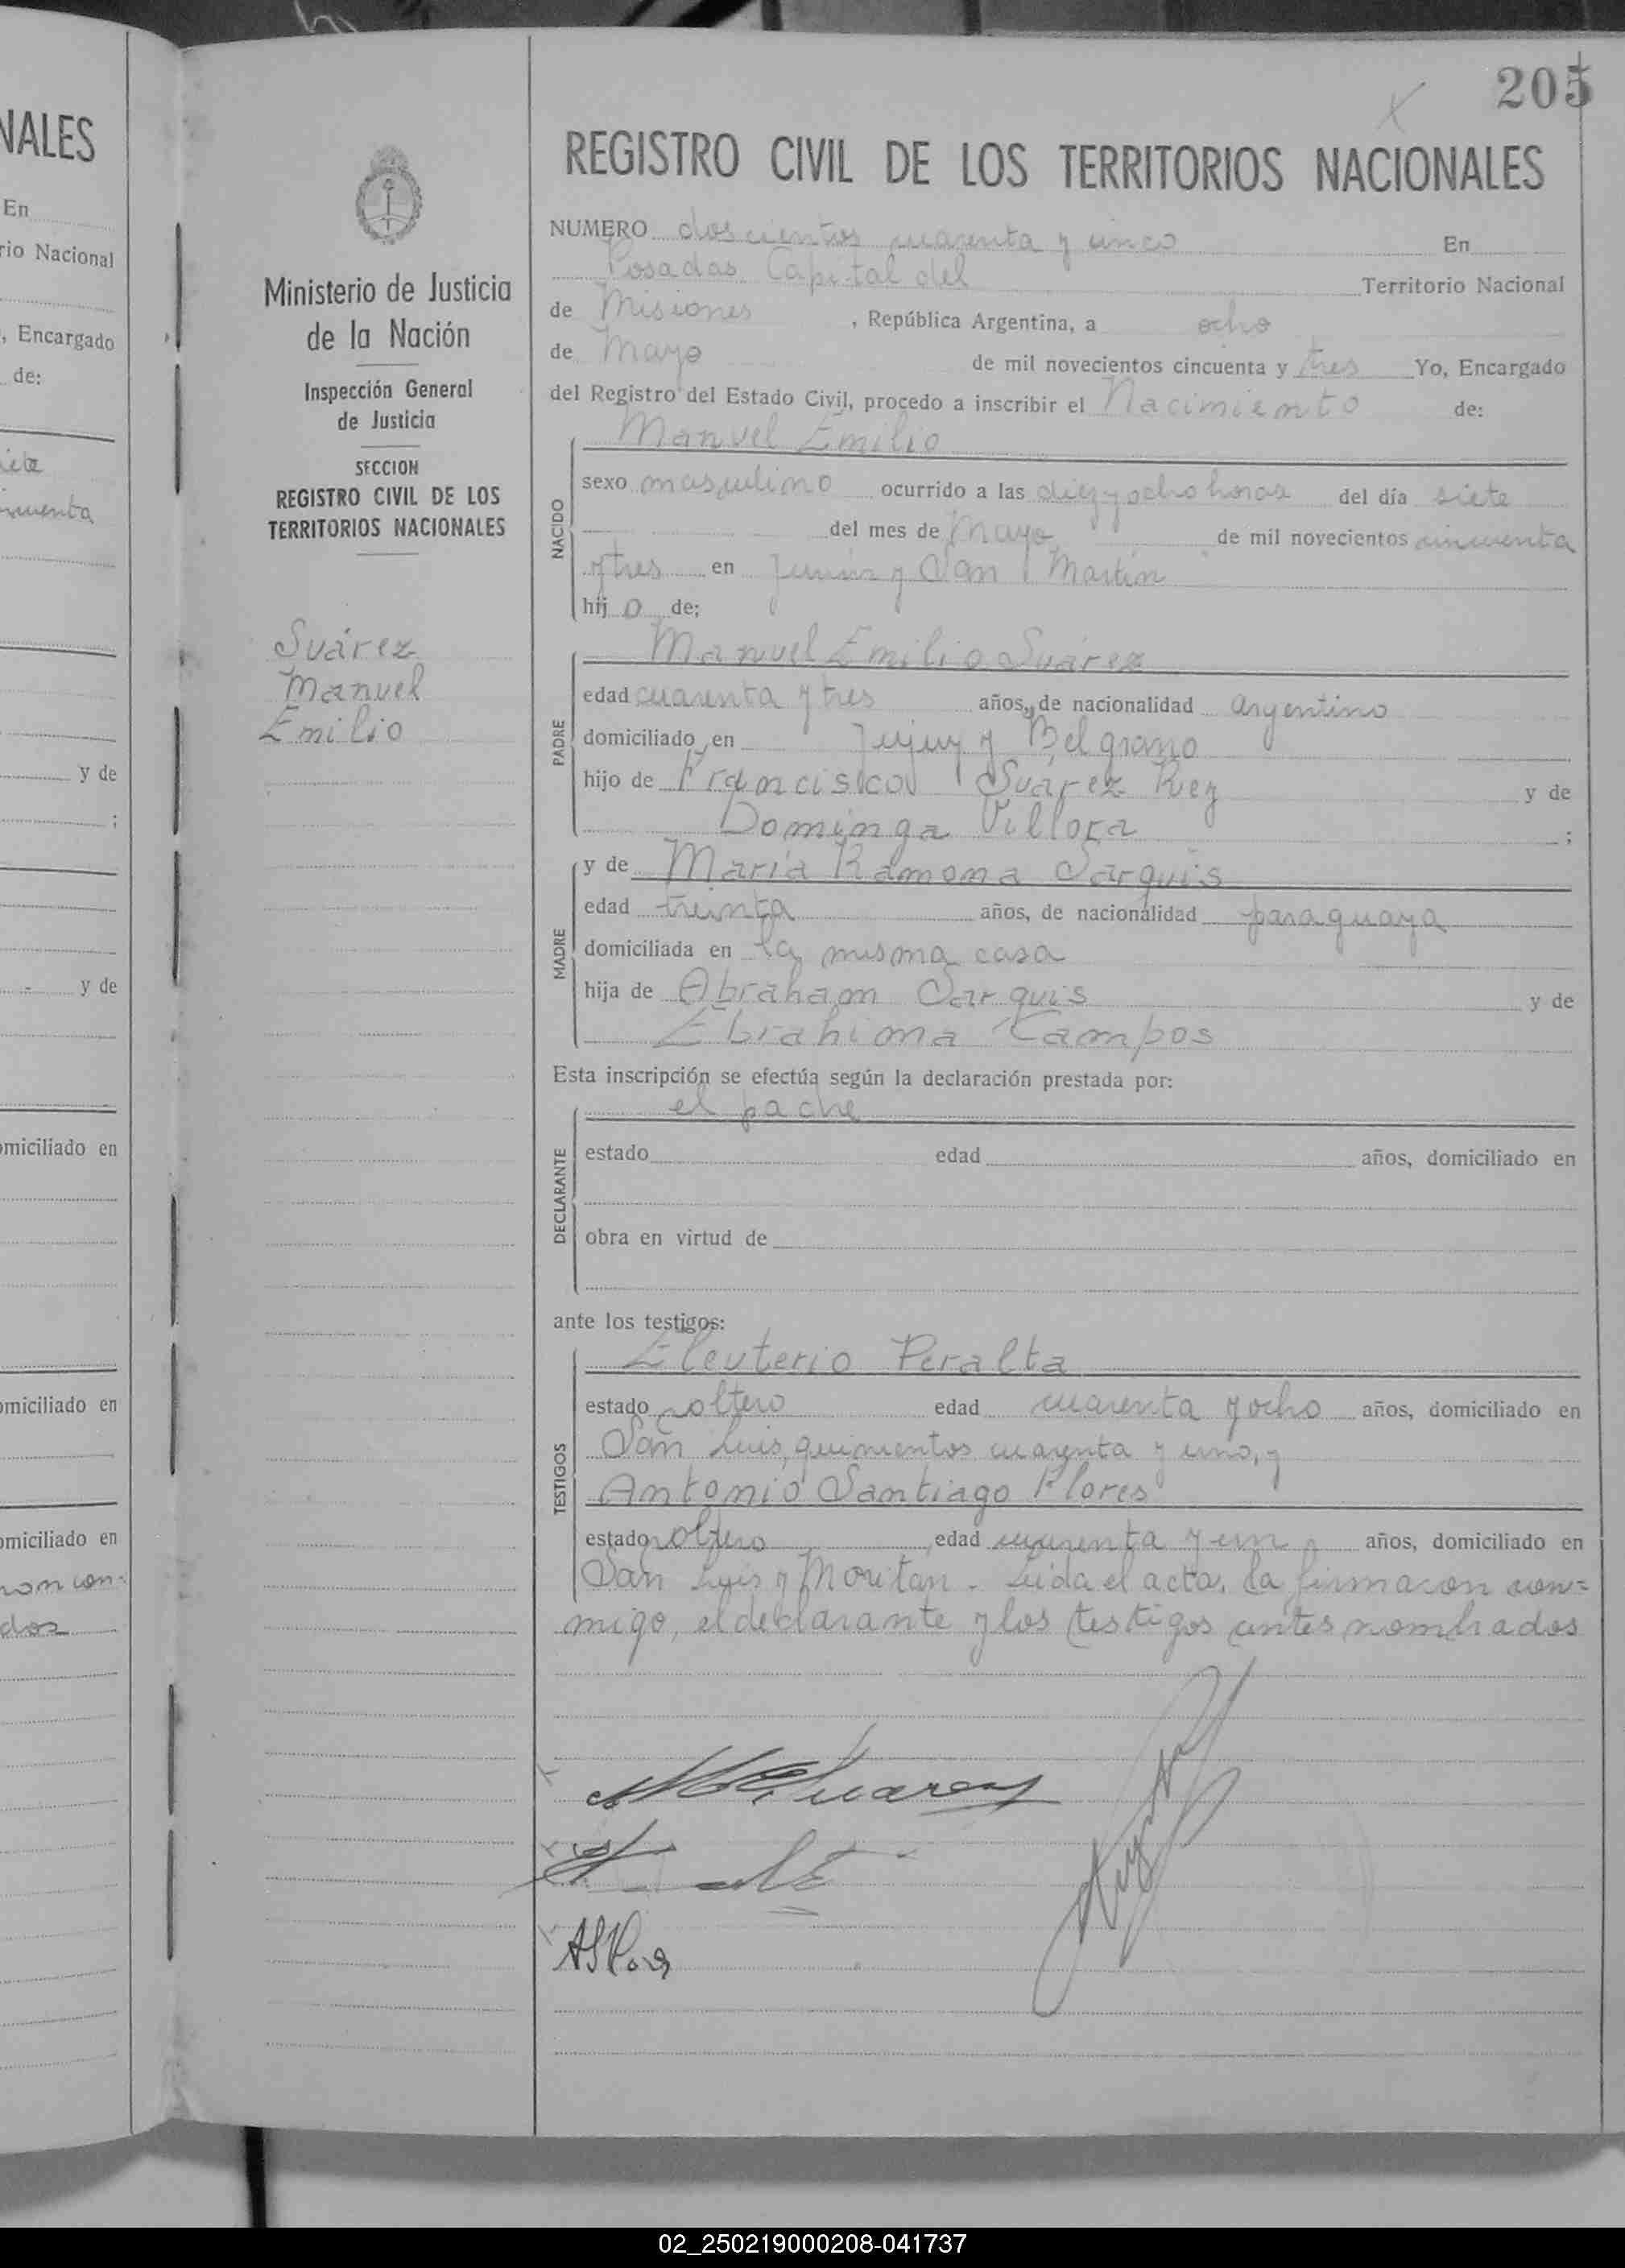 NALES
En
rio Nacional
, Encargado
de:
y de
;
y de
omiciliado en
omiciliado en
omiciliado en
dos
Ministerio de Justicia
de la Nación
Inspección General
de Justicia
SECCION
REGISTRO CIVIL DE LOS
TERRITORIOS NACIONALES
Suárez
Manuel
Emilio
205
REGISTRO CIVIL DE LOS TERRITORIOS NACIONALES
NUMERO doscientos cuarenta y cinco En
Posadas Capital del Territorio Nacional
de Misiones, República Argentina, a ocho
de Mayo de mil novecientos cincuenta y tres Yo, Encargado
del Registro del Estado Civil, procedo a inscribir el Nacimiento de:
Manuel Emilio
NACIDO
sexo masculino ocurrido a las diez y ocho horas del día siete
del mes de Mayo de mil novecientos cincuenta
y tres en Junín y San Martín
hij o de;
Manuel Emilio Suárez
PADRE
edad cuarenta y tres años, de nacionalidad argentino
domiciliado en Jujuy y Belgrano
hijo de Francisco Suárez Rey y de
Dominga Villora ;
MADRE
y de María Ramona Sarquis
edad treinta años, de nacionalidad paraguaya
domiciliada en la misma casa
hija de Abraham Sarquis y de
Ebrahima Campos
Esta inscripción se efectúa según la declaración prestada por:
el padre
DECLARANTE
estado edad años, domiciliado en
obra en virtud de
ante los testigos:
Eleuterio Peralta
TESTIGOS
estado soltero edad cuarenta y ocho años, domiciliado en
San Luis, quinientos cuarenta y uno, y
Antonio Santiago Flores
estado soltero edad cuarenta y un años, domiciliado en
San Luis y Moritan. Leida el acta, la firmaron con=
migo, el declarante y los testigos antes nombrados
MESuarez
02_250219000208-041737